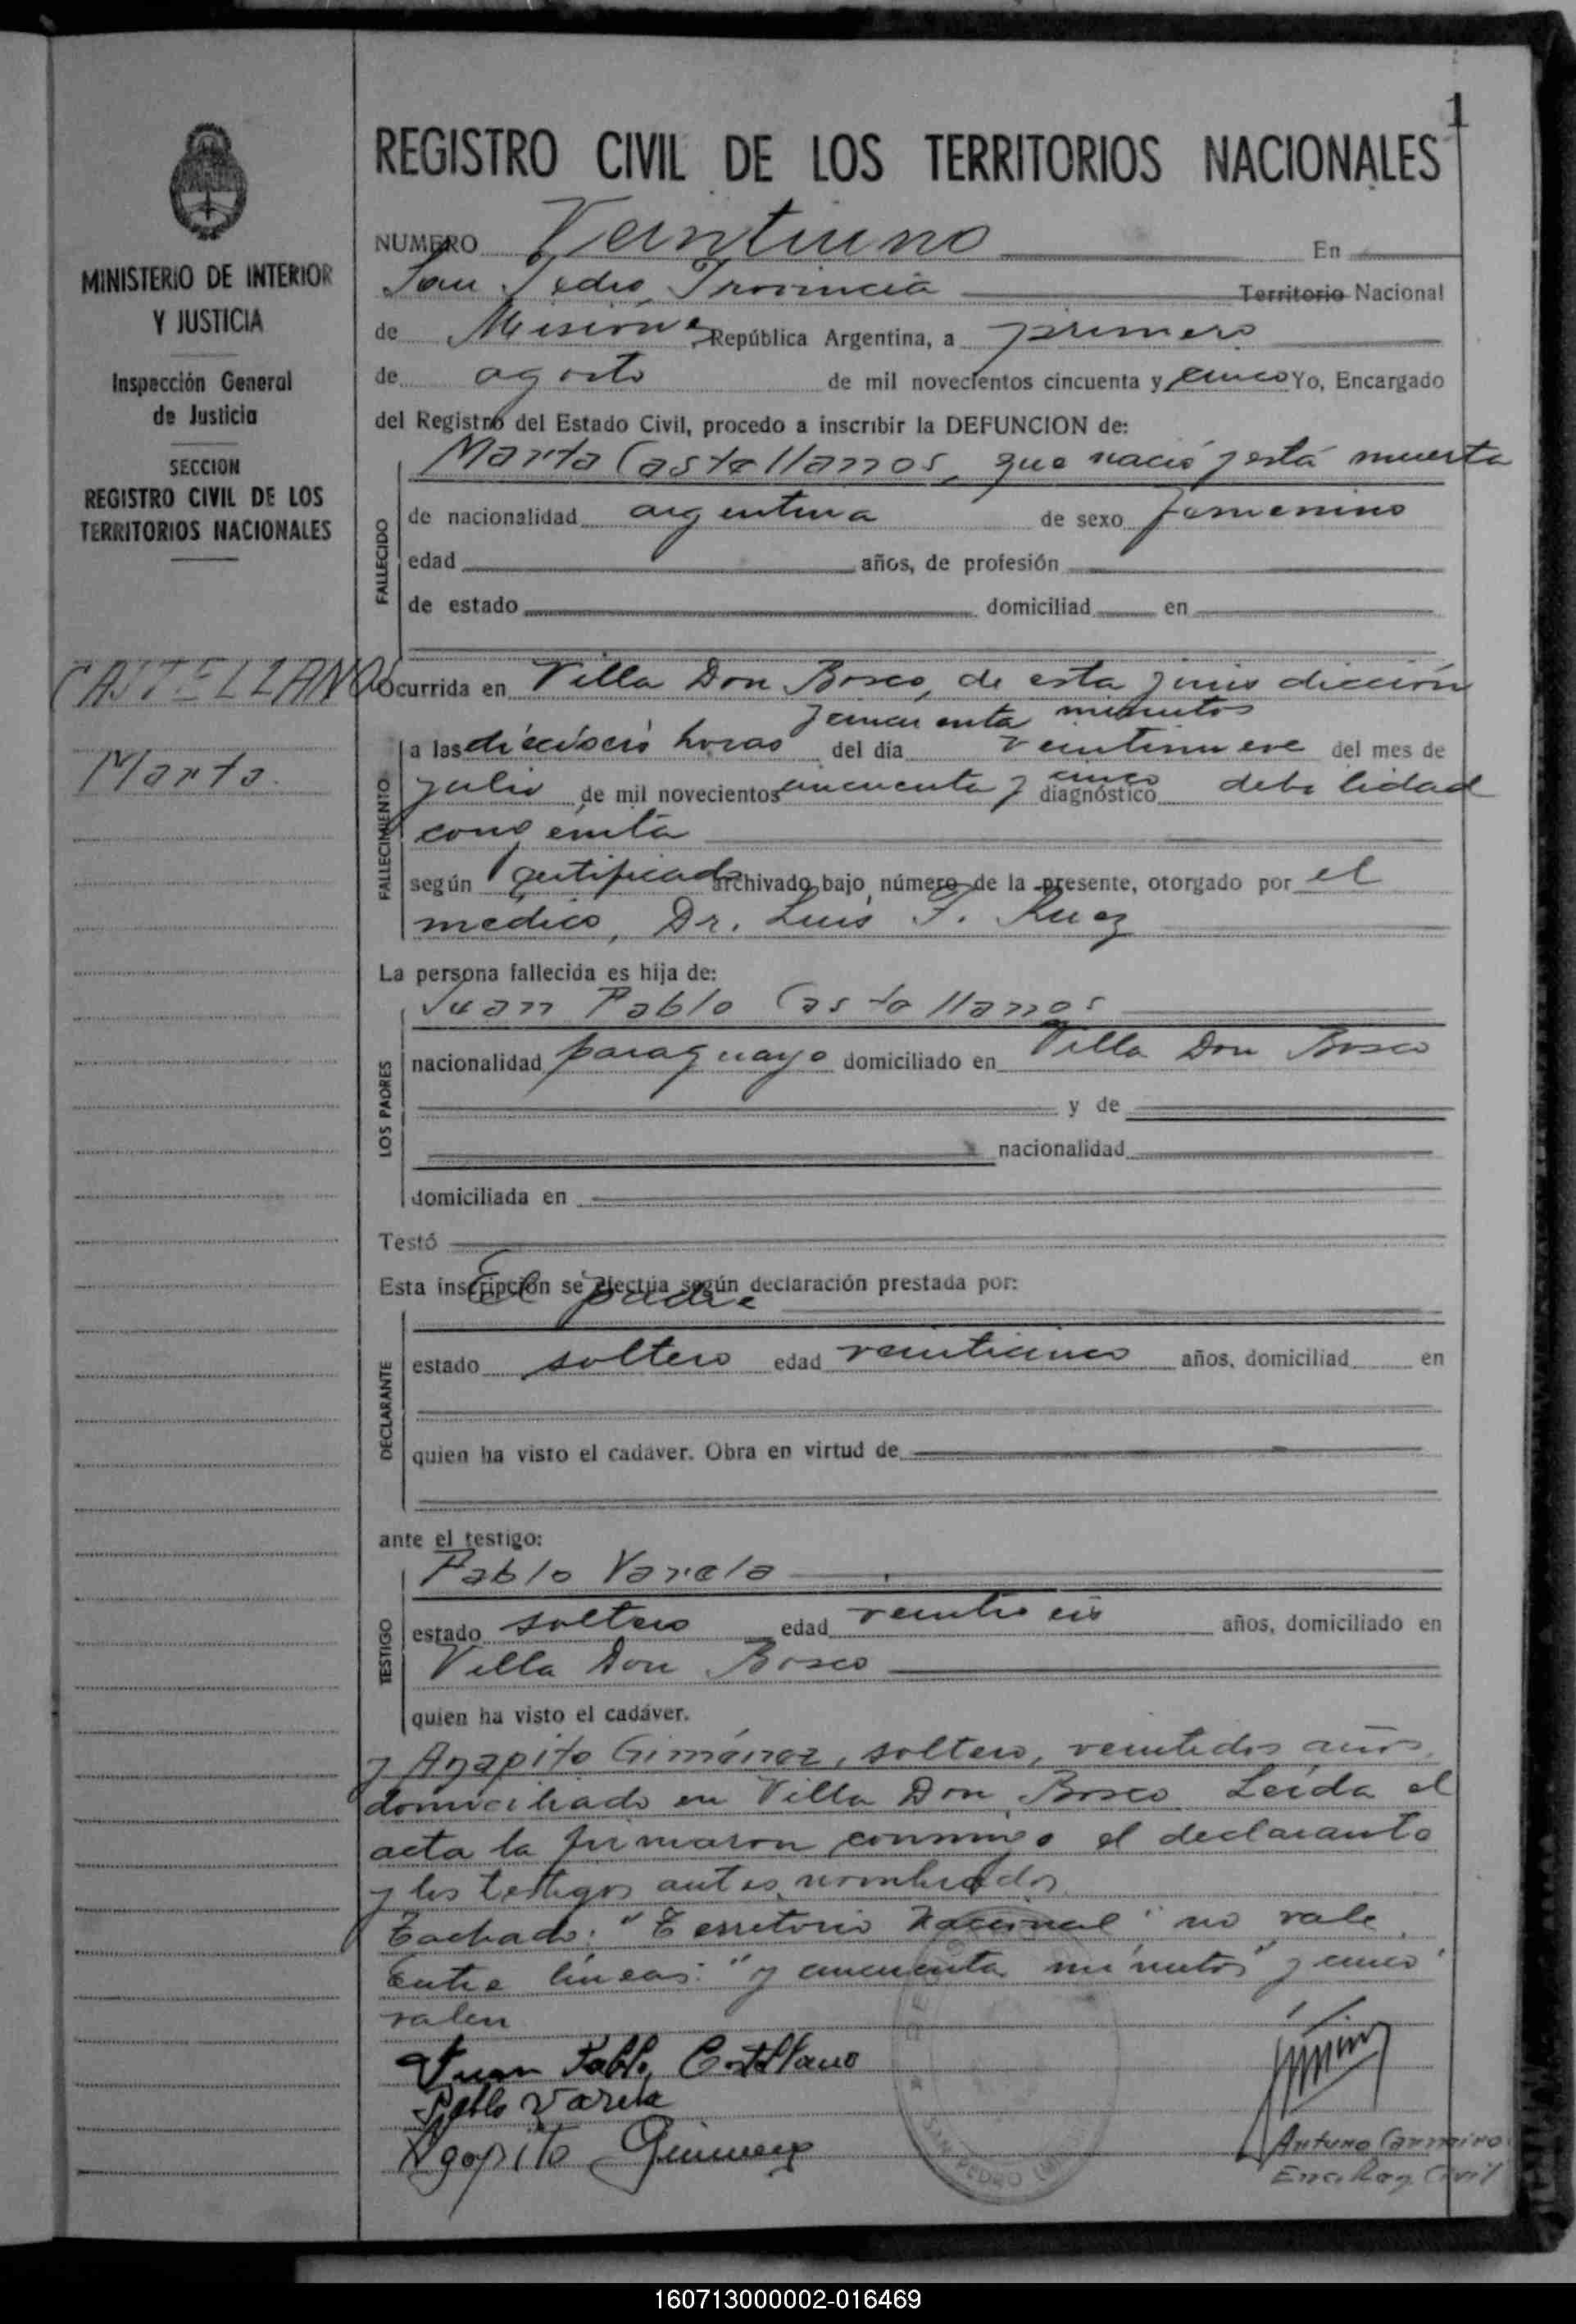 1
REGISTRO CIVIL DE LOS TERRITORIOS NACIONALES
MINISTERIO DE INTERIOR
Y JUSTICIA
Inspección General
de Justicia
SECCION
REGISTRO CIVIL DE LOS
TERRITORIOS NACIONALES
CASTELLANOS
Marta.
NUMERO Veintiuno En
San Pedro, Provincia Territorio Nacional
de Misiones República Argentina, a primero
de agosto de mil novecientos cincuenta y cinco Yo, Encargado
del Registro del Estado Civil, procedo a inscribir la DEFUNCION de:
FALLECIDO
Marta Castellanos, que nació y está muerta
de nacionalidad argentina de sexo femenino
edad años, de profesión
de estado domiciliad en
Ocurrida en Villa Don Bosco, de esta jurisdicción
y cincuenta minutos
a las dieciseis horas del día veintinueve del mes de
FALLECIMIENTO
julio de mil novecientos cincuenta y cinco diagnóstico debilidad
congénita
según certificado archivado bajo número de la presente, otorgado por el
medico, Dr. Luis F. Ruez
La persona fallecida es hija de:
LOS PADRES
Juan Pablo Castellanos
nacionalidad paraguayo domiciliado en Villa Don Bosco
y de
nacionalidad
domiciliada en
Testó
Esta inscripción se efectúa según declaración prestada por:
El padre
DECLARANTE
estado soltero edad veinticinco años, domiciliad en
quien ha visto el cadáver. Obra en virtud de
ante el testigo:
TESTIGO
Pablo Varela
estado soltero edad veintiseis años, domiciliado en
Villa Don Bosco
quien ha visto el cadáver.
y Agapito Giménez, soltero, veintidos años,
domiciliado en Villa Don Bosco. Leída el
acta la firmaron conmigo el declarante
y los testigos antes nombrados
Tachado: "Territorio Nacional" no vale.
Entre líneas: "y cincuenta minutos" y cinco"
valen
Juan Pablo Castellano
Pablo Varela
Agapito Gimenez
SAN PEDRO
Arturo Carneiro
Enc. Reg. Civil
160713000002-016469